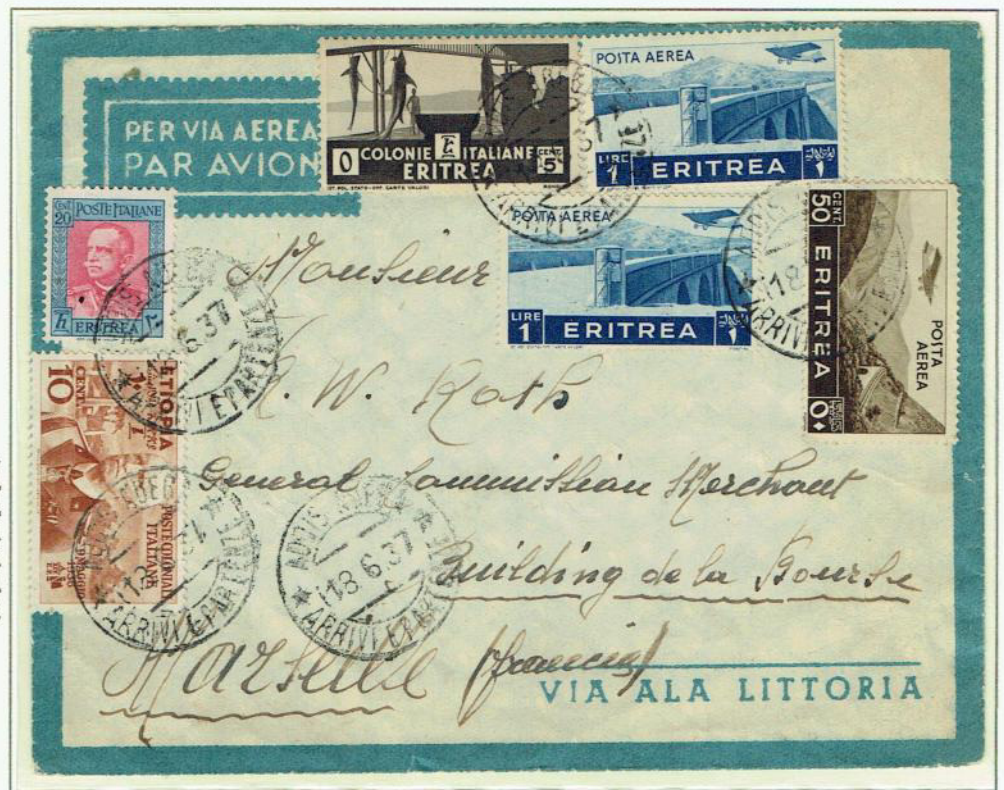 PER VIA AEREA
PAR AVION
0 COLONIE ITALIANE CENT. 5
ERITREA
POSTA AEREA
LIRE 1 ERITREA
POSTA AEREA
LIRE 1 ERITREA
CENT. 50 ERITREA
POSTA AEREA
CENT. 20 POSTE ITALIANE
ERITREA
ETIOPIA
CENT 10
POSTE COLONIALI
ITALIANE
ADDIS
18.6.37
ARRIVI E PARTENZE
Monsieur
W. Roth
General Commission Merchant
Building de la Bourse
Marseille
VIA ALA LITTORIA